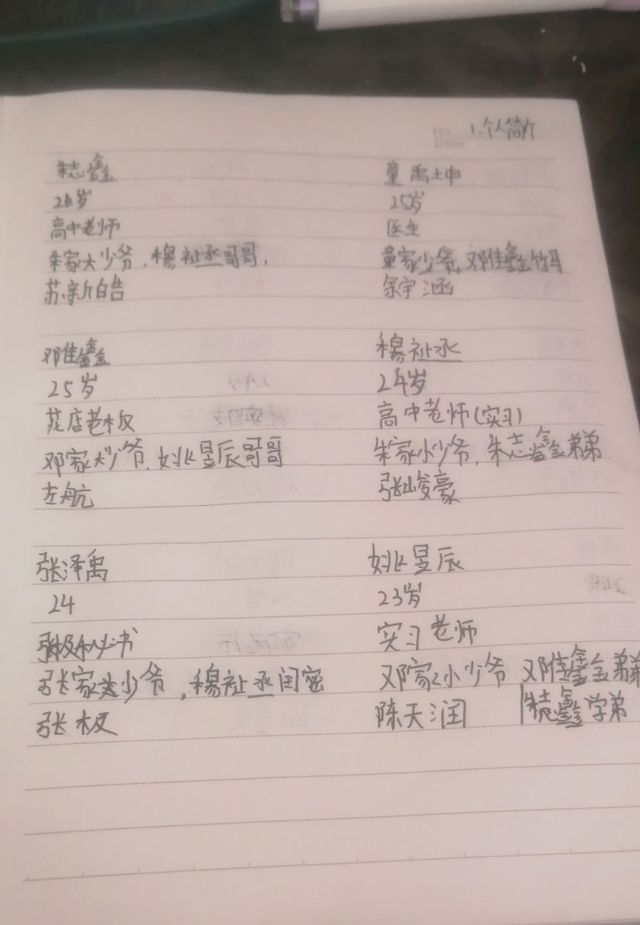 No.
Date
1.个人简介
朱志鑫
26岁
高中老师
朱家大少爷、穆祉丞哥哥,
苏新皓
童禹坤
25岁
医生
童家少爷,邓佳鑫竹马
余宇涵
邓佳鑫
25岁
花店老板
邓家大少爷,姚昱辰哥哥
左航
穆祉丞
24岁
高中老师(实习)
朱家小少爷,朱志鑫弟弟
张峻豪
张泽禹
24
张极秘书
张家大少爷,穆祉丞闺密
张极
姚昱辰
23岁
实习老师
邓家小少爷 邓佳鑫弟弟
陈天润
朱志鑫学弟